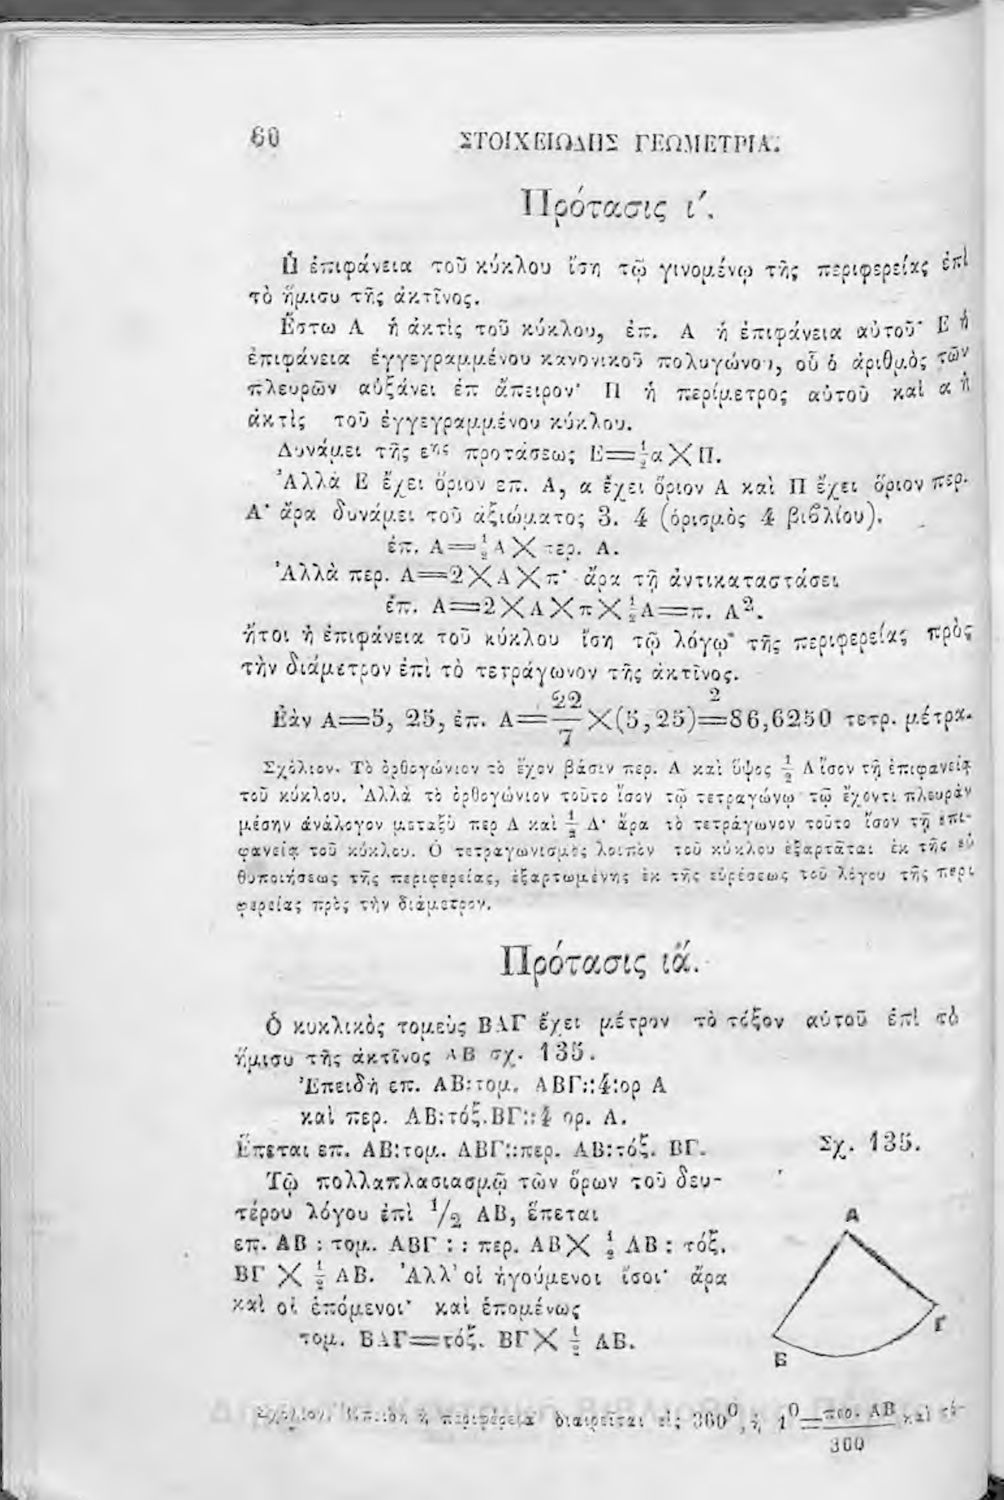 60 ΣΤΟΙΧΕΙΩΔΗΣ ΓΕΩΜΕΤΡΙΑ.
Πρότασις ι΄.
Ἡ ἐπιφάνεια τοῦ κύκλου ἴση τῷ γινομένῳ τῆς περιφερείας ἐπὶ
τὸ ἥμισυ τῆς ἀκτῖνος.
Ἔστω Α ἡ ἀκτὶς τοῦ κύκλου, ἐπ. Α ἡ ἐπιφάνεια αὐτοῦ· Ε ἡ
ἐπιφάνεια ἐγγεγραμμένου κανονικοῦ πολυγώνου, οὗ ὁ ἀριθμὸς τῶν
πλευρῶν αὐξάνει ἐπ ἄπειρον· Π ἡ περίμετρος αὐτοῦ καὶ α ἡ
ἀκτὶς τοῦ ἐγγεγραμμένου κύκλου.
Δυνάμει τῆς ε<sup>ης</sup> προτάσεως Ε=½αΧΠ.
Ἀλλὰ Ε ἔχει ὅριον επ. Α, α ἔχει ὅριον Α καὶ Π ἔχει ὅριον περ.
Α· ἄρα δυνάμει τοῦ ἀξιώματος 3. 4 (ὁρισμὸς 4 βιβλίου).
ἐπ. Α=½ΑΧπερ. Α.
Ἀλλὰ περ. Α=2ΧΑΧπ· ἄρα τῇ ἀντικαταστάσει
ἐπ. Α=2ΧΑΧπΧ½Α=π. Α².
ἤτοι ἡ ἐπιφάνεια τοῦ κύκλου ἴση τῷ λόγῳ τῆς περιφερείας πρὸς
τὴν διάμετρον ἐπὶ τὸ τετράγωνον τῆς ἀκτῖνος.
Ἐὰν Α=5, 25, ἐπ. Α=22/7Χ(5,25)²=86,6250 τετρ. μέτρα.
Σχόλιον. Τὸ ὀρθογώνιον τὸ ἔχον βάσιν περ. Α καὶ ὕψος ½ Α ἴσον τῇ ἐπιφανείᾳ
τοῦ κύκλου. Ἀλλὰ τὸ ὀρθογώνιον τοῦτο ἴσον τῷ τετραγώνῳ τῷ ἔχοντι πλευρὰν
μέσην ἀνάλογον μεταξὺ περ Α καὶ ½ Α· ἄρα τὸ τετράγωνον τοῦτο ἴσον τῇ ἐπι-
φανείᾳ τοῦ κύκλου. Ὁ τετραγωνισμὸς λοιπὸν τοῦ κύκλου ἐξαρτᾶται ἐκ τῆς εὐ
θυποιήσεως τῆς περιφερείας, ἐξαρτωμένης ἐκ τῆς εὑρέσεως τοῦ λόγου τῆς περι
φερείας πρὸς τὴν διάμετρον.
Πρότασις ιά.
Ὁ κυκλικὸς τομεὺς ΒΑΓ ἔχει μέτρον τὸ τόξον αὐτοῦ ἐπὶ τὸ
ἥμισυ τῆς ἀκτῖνος ΑΒ σχ. 135.
Ἐπειδὴ επ. ΑΒ:τομ. ΑΒΓ::4:ορ Α
καὶ περ. ΑΒ:τόξ.ΒΓ::4 ορ. Α.
Ἕπεται επ. ΑΒ:τομ. ΑΒΓ::περ. ΑΒ:τόξ. ΒΓ.
Τῷ πολλαπλασιασμῷ τῶν ὅρων τοῦ δευ-
τέρου λόγου ἐπὶ 1/2 ΑΒ, ἕπεται
επ. ΑΒ : τομ. ΑΒΓ : : περ. ΑΒΧ ½ ΑΒ : τόξ.
ΒΓ Χ ½ ΑΒ. Ἀλλ' οἱ ἡγούμενοι ἴσοι· ἄρα
καὶ οἱ ἑπόμενοι· καὶ ἑπομένως
τομ. ΒΑΓ=τόξ. ΒΓΧ ½ ΑΒ.
Σχ. 135.
Α
Γ
Β
Σχόλιον. Ἐπειδὴ ἡ περιφέρεια διαιρεῖται εἰς 360⁰, ἡ 1⁰=περ. ΑΒ/360 καὶ